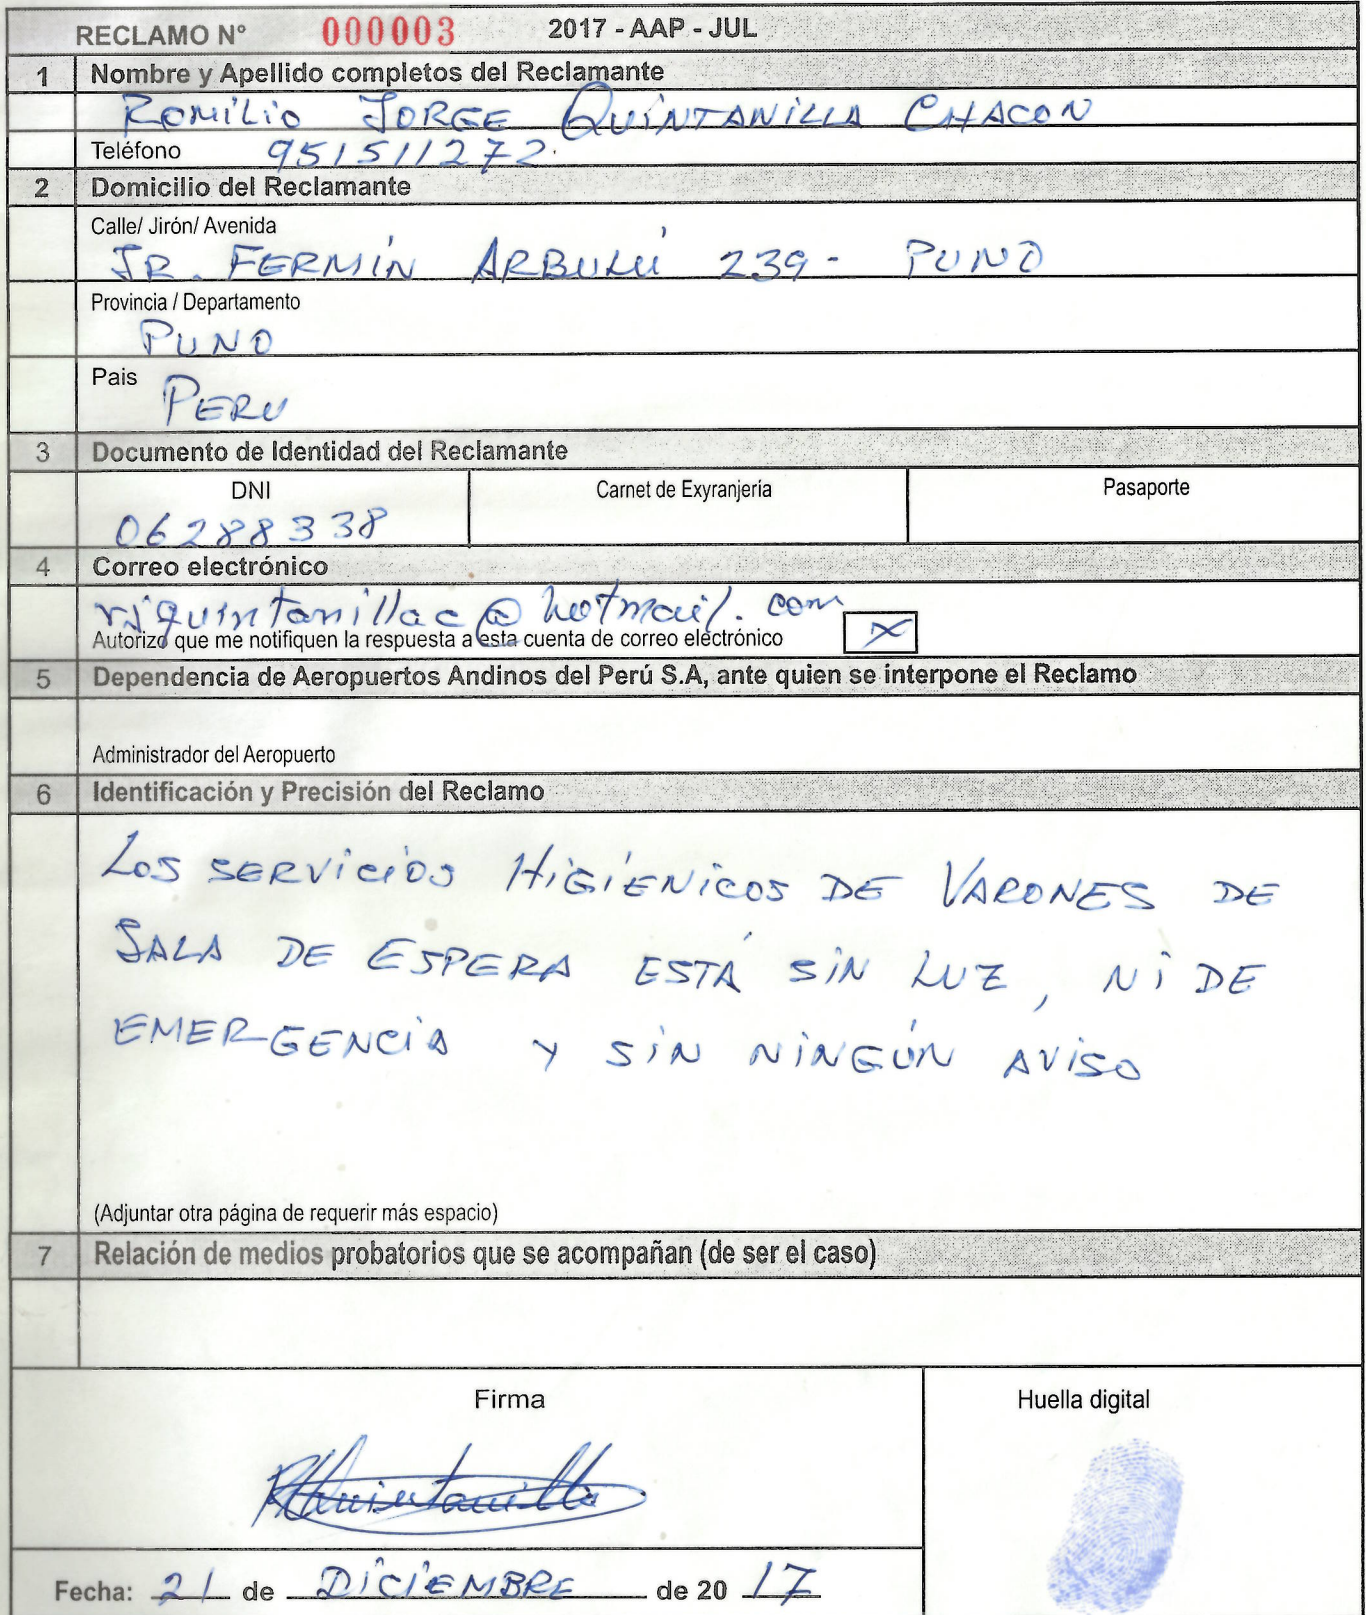 RECLAMO N° 000003 2017 - AAP - JUL
1 Nombre y Apellido completos del Reclamante
ROMILIO JORGE QUINTANILLA CHACON
Teléfono 951511272.
2 Domicilio del Reclamante
Calle/ Jirón/ Avenida
JR. FERMÍN ARBULÚ 239 - PUNO
Provincia / Departamento
PUNO
Pais
PERU
3 Documento de Identidad del Reclamante
DNI Carnet de Exyranjería Pasaporte
06288338
4 Correo electrónico
rjquintanillac@hotmail.com
Autorizo que me notifiquen la respuesta a esta cuenta de correo electrónico X
5 Dependencia de Aeropuertos Andinos del Perú S.A, ante quien se interpone el Reclamo
Administrador del Aeropuerto
6 Identificación y Precisión del Reclamo
LOS SERVICIOS HIGIÉNICOS DE VARONES DE
SALA DE ESPERA ESTÁ SIN LUZ, NI DE
EMERGENCIA Y SIN NINGÚN AVISO
(Adjuntar otra página de requerir más espacio)
7 Relación de medios probatorios que se acompañan (de ser el caso)
Firma Huella digital
RQuintanilla
Fecha: 21 de DICIEMBRE de 20 17